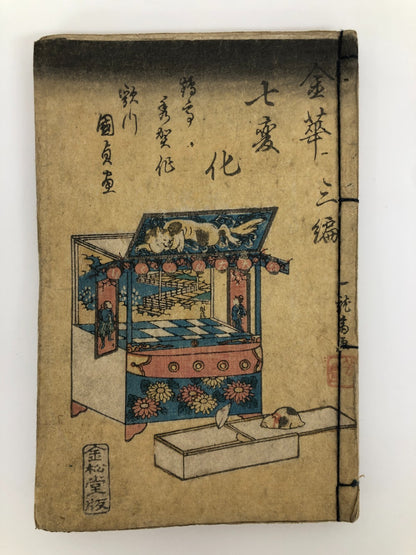 金華
七変化
三編
鶴亭
秀賀作
歌川
国貞画
金松堂版